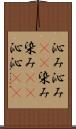 沁み沁み
染み
染み
沁沁